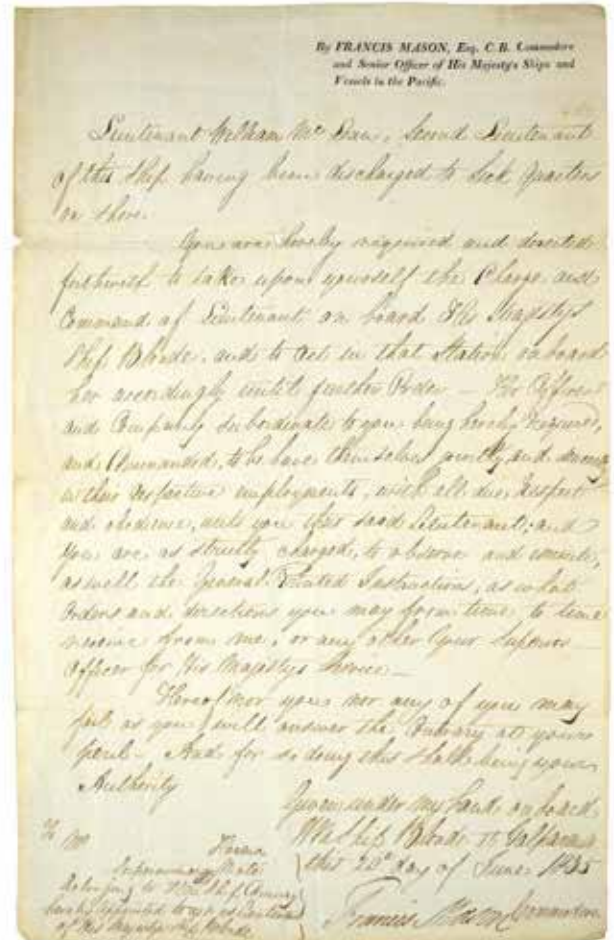 By FRANCIS MASON, Esq. C.B. Commodore
and Senior Officer of His Majesty's Ships and
Vessels in the Pacific.
Lieutenant William Mc Lean, Second Lieutenant
of this Ship having been discharged to Sick Quarters
on Shore.
You are hereby required and directed
forthwith to take upon yourself the Charge and
Command of Lieutenant on board His Majesty's
Ship Blonde, and to act in that Station on board
her accordingly until further Order — The Officers
and Company subordinate to you being hereby required,
and Commanded, to behave themselves jointly, and severally
in their respective employments, with all due respect
and obedience, unto you their said Lieutenant; and
you are as strictly charged, to observe and execute,
as well the General Printed Instructions, as what
Orders and directions you may from time to time
receive from me, or any other Your Superior
Officer for His Majesty's Service —
Hereof nor you nor any of you may
fail as you will answer the Contrary at your
peril — And for so doing this shall be your
Authority
Given under my hand on board
Blonde
this 20th day of June 1835
Francis Mason Commodore
To Mr
Supernumerary Mate
belonging to Ship
hereby appointed to act as Lieutenant
of His Majesty's Ship Blonde